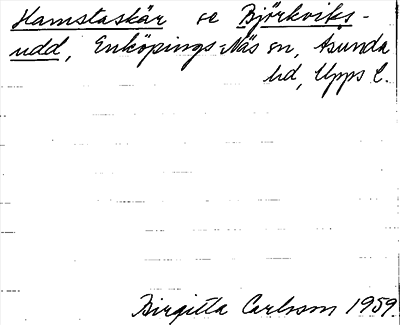 Hamstaskär se Björkviks-
udd, Enköpings-Näs sn, Åsunda
hd, Upps l.
Birgitta Carlsson 1959.